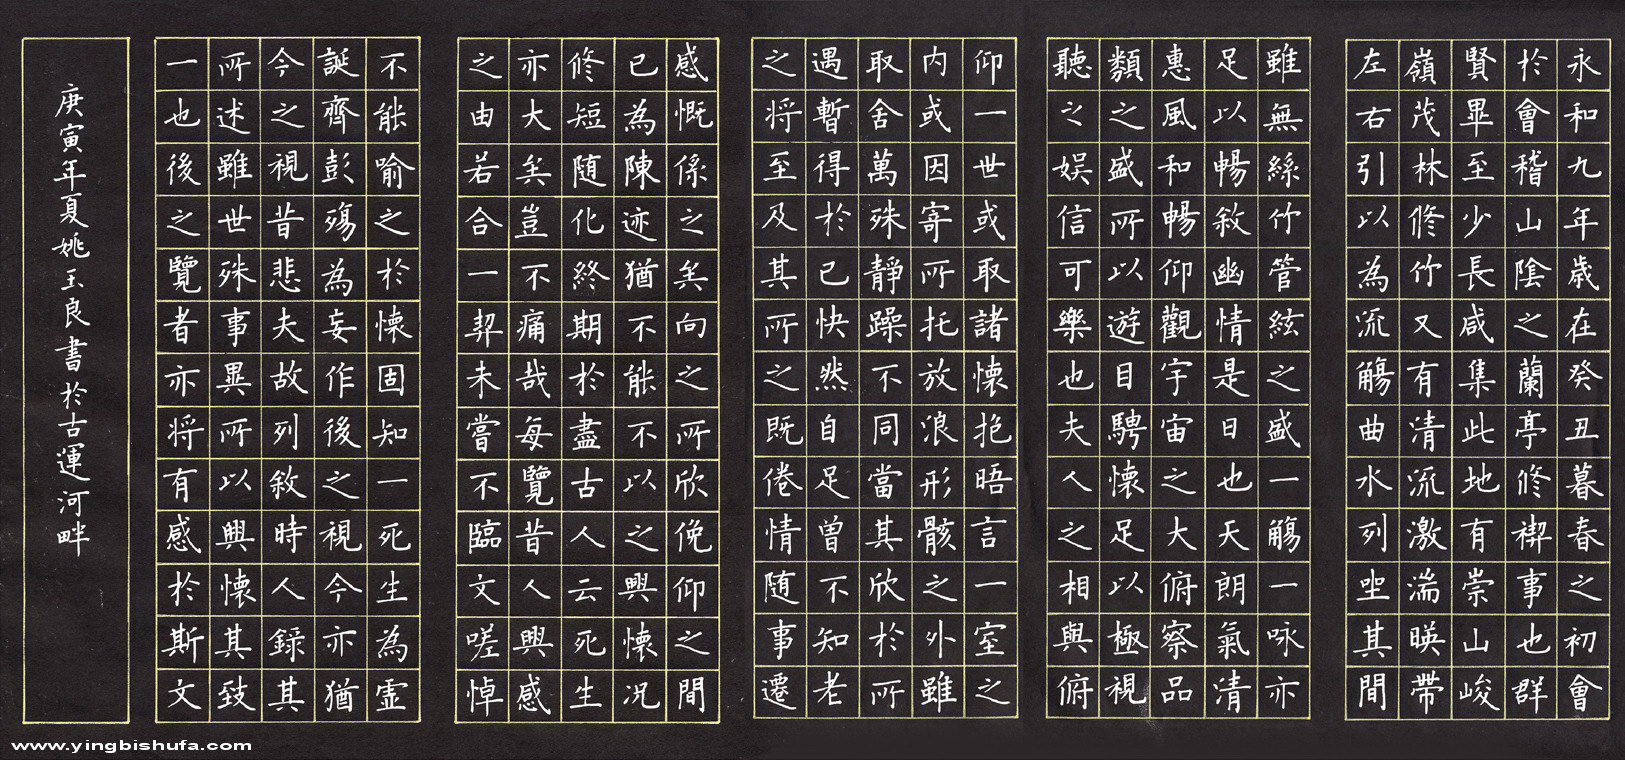 永和九年歲在癸丑暮春之初會
於會稽山陰之蘭亭修禊事也群
賢畢至少長咸集此地有崇山峻
嶺茂林修竹又有清流激湍暎帶
左右引以為流觴曲水列坐其間
雖無絲竹管絃之盛一觴一咏亦
足以暢敘幽情是日也天朗氣清
惠風和暢仰觀宇宙之大俯察品
類之盛所以遊目騁懷足以極視
聽之娛信可樂也夫人之相與俯
仰一世或取諸懷抱晤言一室之
内或因寄所托放浪形骸之外雖
取舍萬殊靜躁不同當其欣於所
遇暫得於己快然自足曾不知老
之将至及其所之既倦情随事遷
感慨係之矣向之所欣俛仰之間
已為陳迹猶不能不以之興懷况
修短随化終期於盡古人云死生
亦大矣豈不痛哉每覽昔人興感
之由若合一契未嘗不臨文嗟悼
不能喻之於懷固知一死生為虛
誕齊彭殤為妄作後之視今亦猶
今之視昔悲夫故列敘時人錄其
所述雖世殊事異所以興懷其致
一也後之覽者亦将有感於斯文
庚寅年夏姚玉良書於古運河畔
www.yingbishufa.com